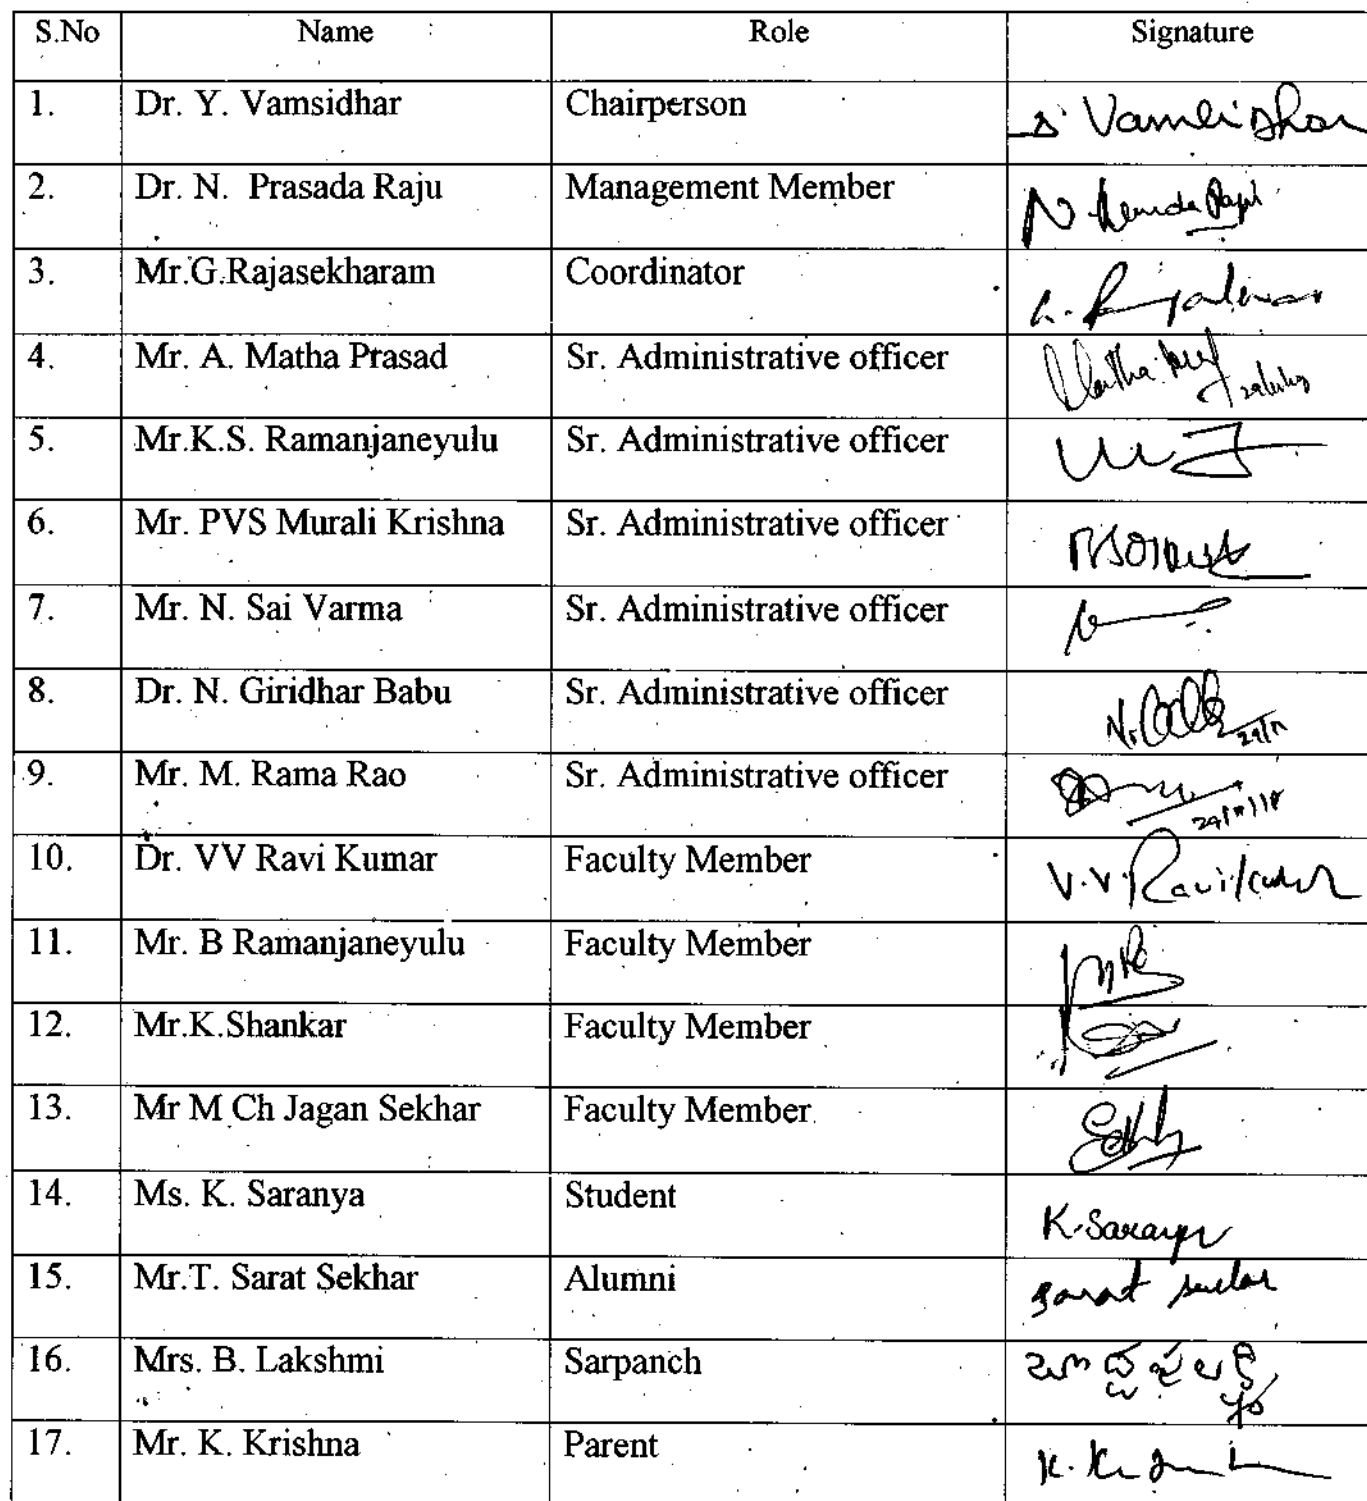 S.No Name Role Signature
1. Dr. Y. Vamsidhar Chairperson
2. Dr. N. Prasada Raju Management Member
3. Mr.G.Rajasekharam Coordinator
4. Mr. A. Matha Prasad Sr. Administrative officer
5. Mr.K.S. Ramanjaneyulu Sr. Administrative officer
6. Mr. PVS Murali Krishna Sr. Administrative officer
7. Mr. N. Sai Varma Sr. Administrative officer
8. Dr. N. Giridhar Babu Sr. Administrative officer
9. Mr. M. Rama Rao Sr. Administrative officer
10. Dr. VV Ravi Kumar Faculty Member V.V. Ravi Kumar
11. Mr. B Ramanjaneyulu Faculty Member
12. Mr.K.Shankar Faculty Member
13. Mr M Ch Jagan Sekhar Faculty Member
14. Ms. K. Saranya Student K. Saranya
15. Mr.T. Sarat Sekhar Alumni Sarat
16. Mrs. B. Lakshmi Sarpanch
17. Mr. K. Krishna Parent